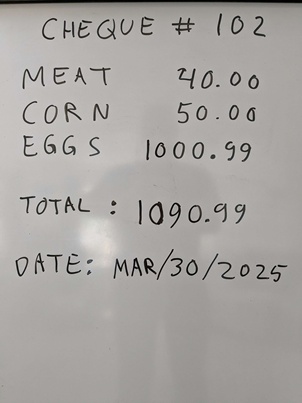 CHEQUE # 102
MEAT 40.00
CORN 50.00
EGGS 1000.99
TOTAL : 1090.99
DATE: MAR/30/2025